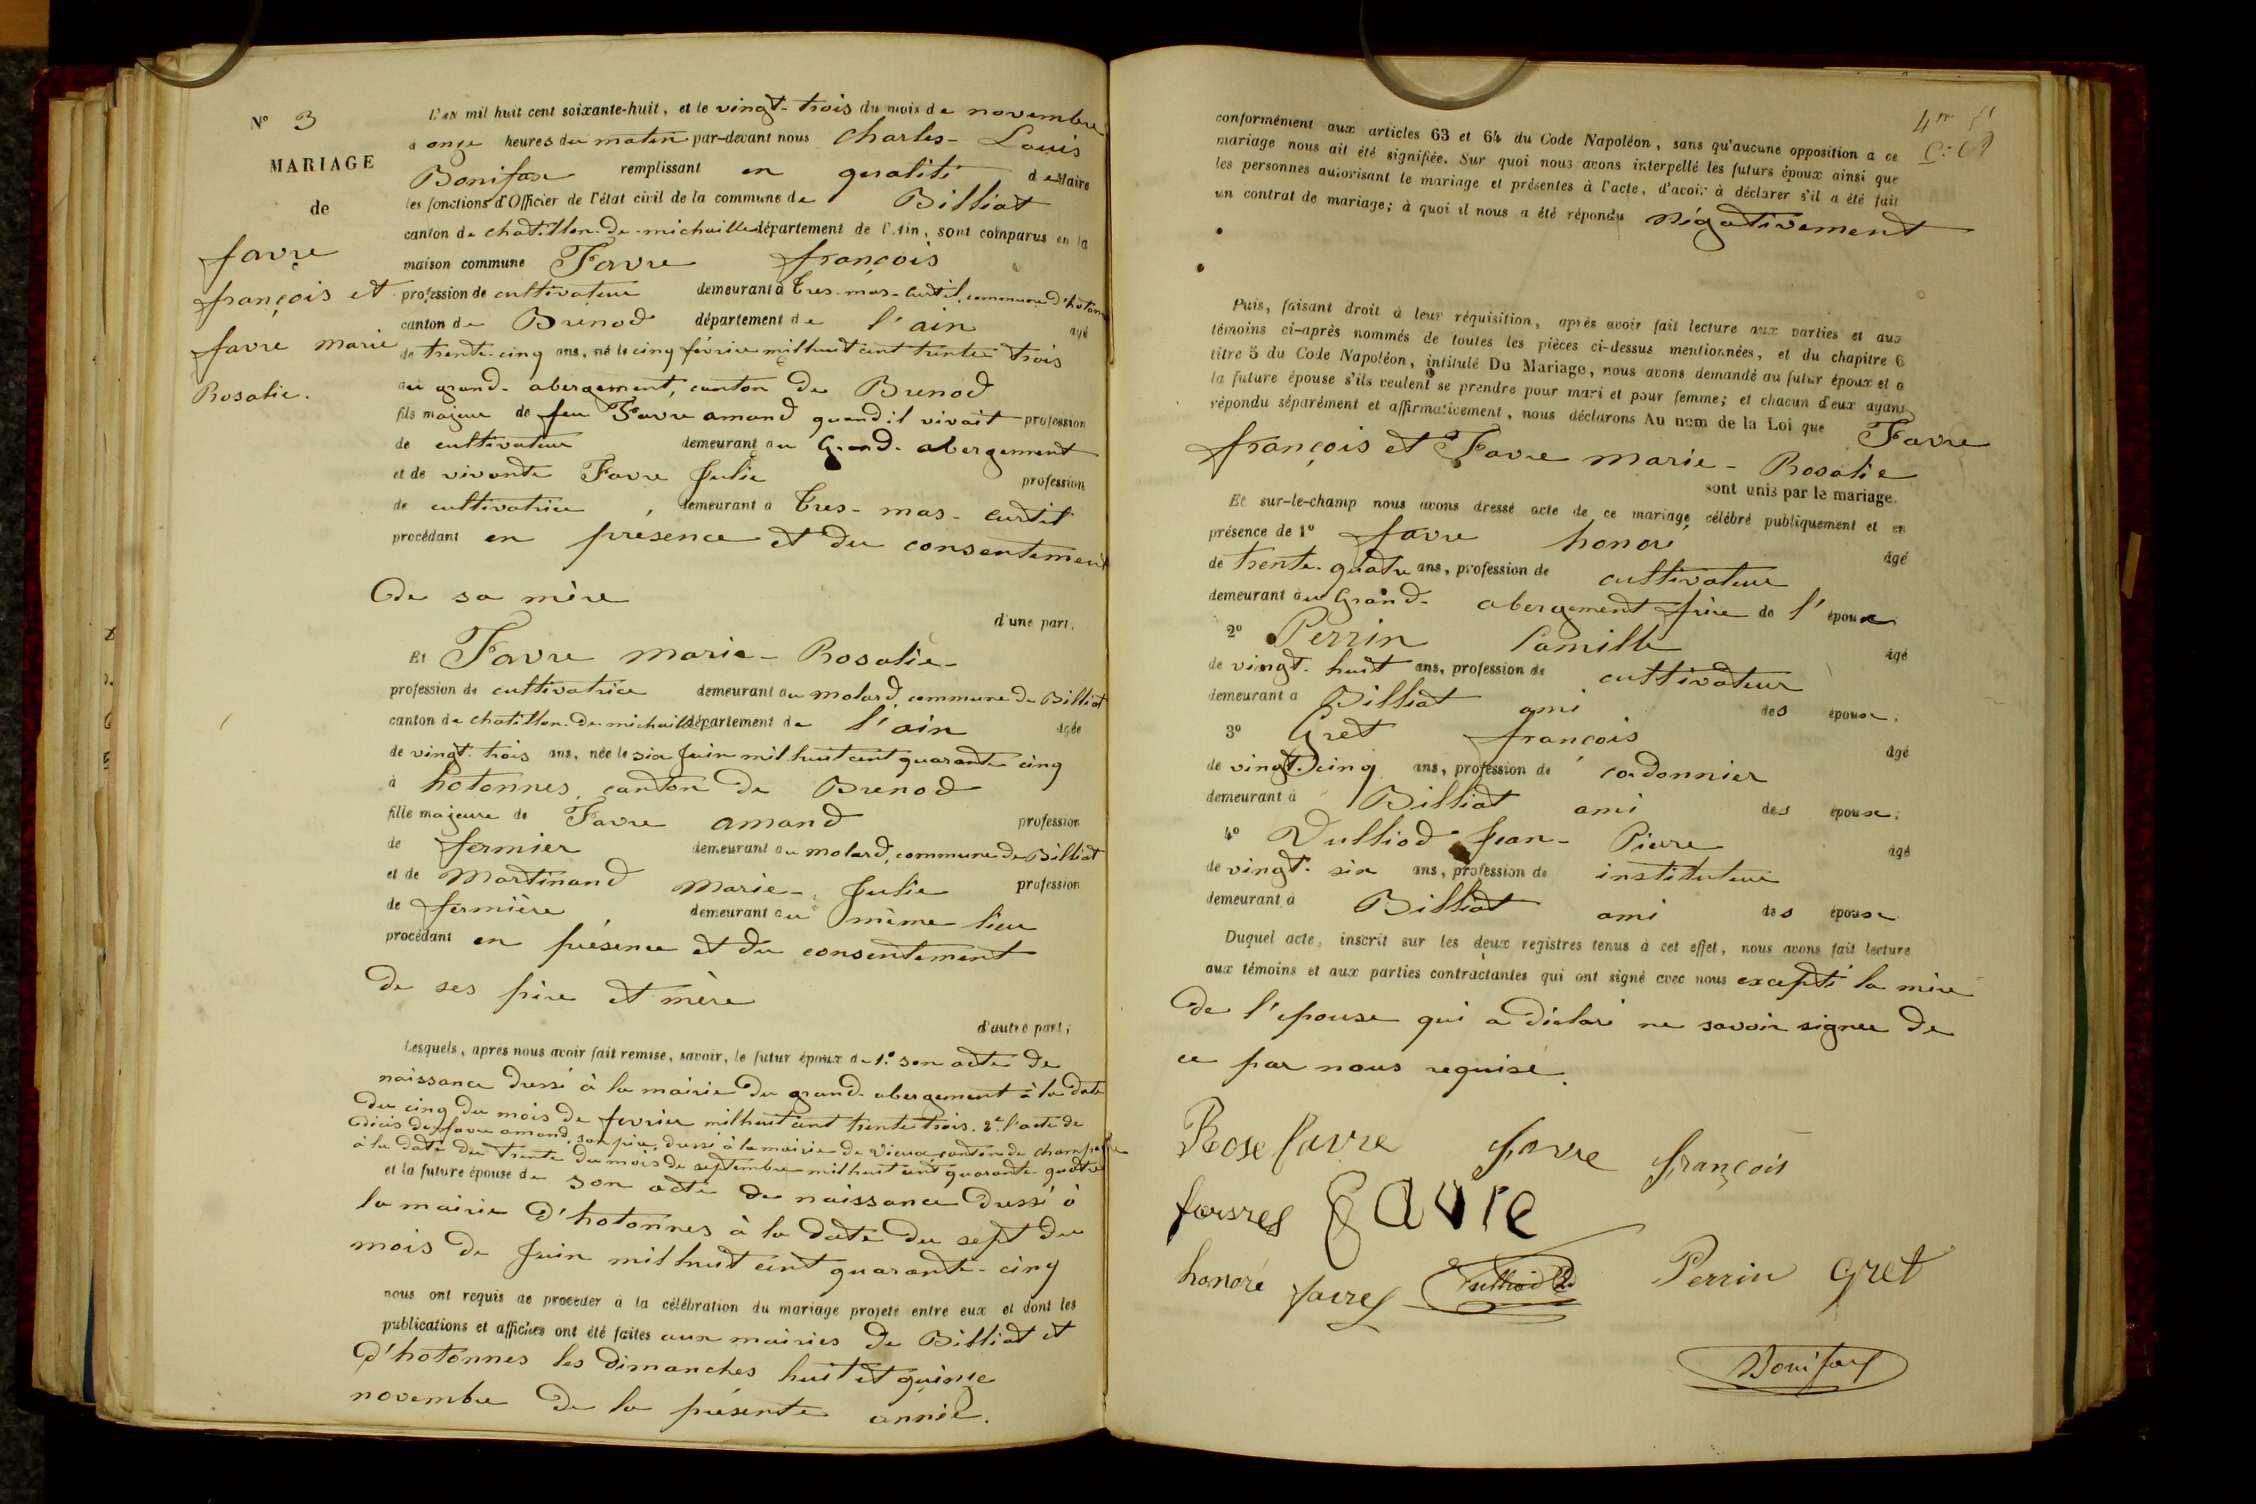 N° 3
MARIAGE
de
favre
françois et
favre marie
Rosalie.
L'an mil huit cent soixante-huit, et le vingt-trois du mois de novembre
à onze heures du matin par-devant nous Charles-Louis
Bonifax remplissant en qualité de Maire
les fonctions d'Officier de l'état civil de la commune de Billiat
canton de chatillon-de-michaille département de l'Ain, sont comparus en la
maison commune Favre françois
profession de cultivateur demeurant à Tres-mas-curtil, commune d'hotonnes
canton de Brenod département de l'ain agé
de trente-cinq ans, né le cinq février mil huit cent trente trois
au grand-abergement, canton de Brenod
fils majeur de feu Favre amand quand il vivait profession
de cultivateur demeurant au Grand-abergement
et de vivante Favre Julie profession
de cultivatrice, demeurant à Tres-mas-curtil
procédant en présence et du consentement
De sa mère
d'une part,
Et Favre marie-Rosalie-
profession de cultivatrice demeurant au molard, commune de Billiat
canton de chatillon-de-michaille département de l'ain agée
de vingt-trois ans, née le six Juin mil huit cent quarante cinq
à hotonnes, canton de Brenod
fille majeure de Favre amand profession
de fermier demeurant au molard, commune de Billiat
et de Martinand marie-Julie profession
de fermière, demeurant au même lieu
procédant en présence et du consentement
De ses père et mère
d'autre part;
Lesquels, après nous avoir fait remise, savoir, le futur époux de 1° son acte de
naissance dressé à la mairie du grand-abergement à la date
du cinq du mois de fevrier mil huit cent trente trois. 2° l'acte de
décès de favre amand, son père, dressé à la mairie de Vieux canton de champagne
à la date du trente du mois de septembre mil huit cent quarante-quatre
et la future épouse de son acte de naissance dressé à
la mairie d'hotonnes à la date du sept du
mois de Juin mil huit cent quarante-cinq
nous ont requis de procéder à la célébration du mariage projeté entre eux et dont les
publications et affiches ont été faites aux mairies de Billiat et
d'hotonnes les dimanches huit et quinze
novembre de la présente année.
conformément aux articles 63 et 64 du Code Napoléon, sans qu'aucune opposition a ce
mariage nous ait été signifiée. Sur quoi nous avons interpellé les futurs époux ainsi que
les personnes autorisant le mariage et présentes à l'acte, d'avoir à déclarer s'il a été fait
un contrat de mariage; à quoi il nous a été répondu négativement
Puis, faisant droit à leur réquisition, après avoir fait lecture aux parties et aux
témoins ci-après nommés de toutes les pièces ci-dessus mentionnées, et du chapitre 6
titre 5 du Code Napoléon, intitulé Du Mariage, nous avons demandé au futur époux et à
la future épouse s'ils veulent se prendre pour mari et pour femme; et chacun d'eux ayant
répondu séparément et affirmativement, nous déclarons Au nom de la Loi que Favre
françois et Favre marie-Rosalie
sont unis par le mariage.
Et sur-le-champ nous avons dressé acte de ce mariage célébré publiquement et en
présence de 1° favre honoré agé
de trente-quatre ans, profession de cultivateur
demeurant au Grand-abergement frère de l'époux.
2° Perrin Camille agé
de vingt-huit ans, profession de cultivateur
demeurant à Billiat ami des époux.
3° Gret françois agé
de vingt-cinq ans, profession de cordonnier
demeurant à Billiat ami des époux.
4° Vulliod Jean-Pierre agé
de vingt-six ans, profession de instituteur
demeurant à Billiat ami des époux
Duquel acte, inscrit sur les deux registres tenus à cet effet, nous avons fait lecture
aux témoins et aux parties contractantes qui ont signé avec nous excepté la mère
De l'épouse qui a déclaré ne savoir signer de
ce par nous requise.
Rose favre favre françois
favre
honoré favre Vulliod Perrin Gret
Bonifax